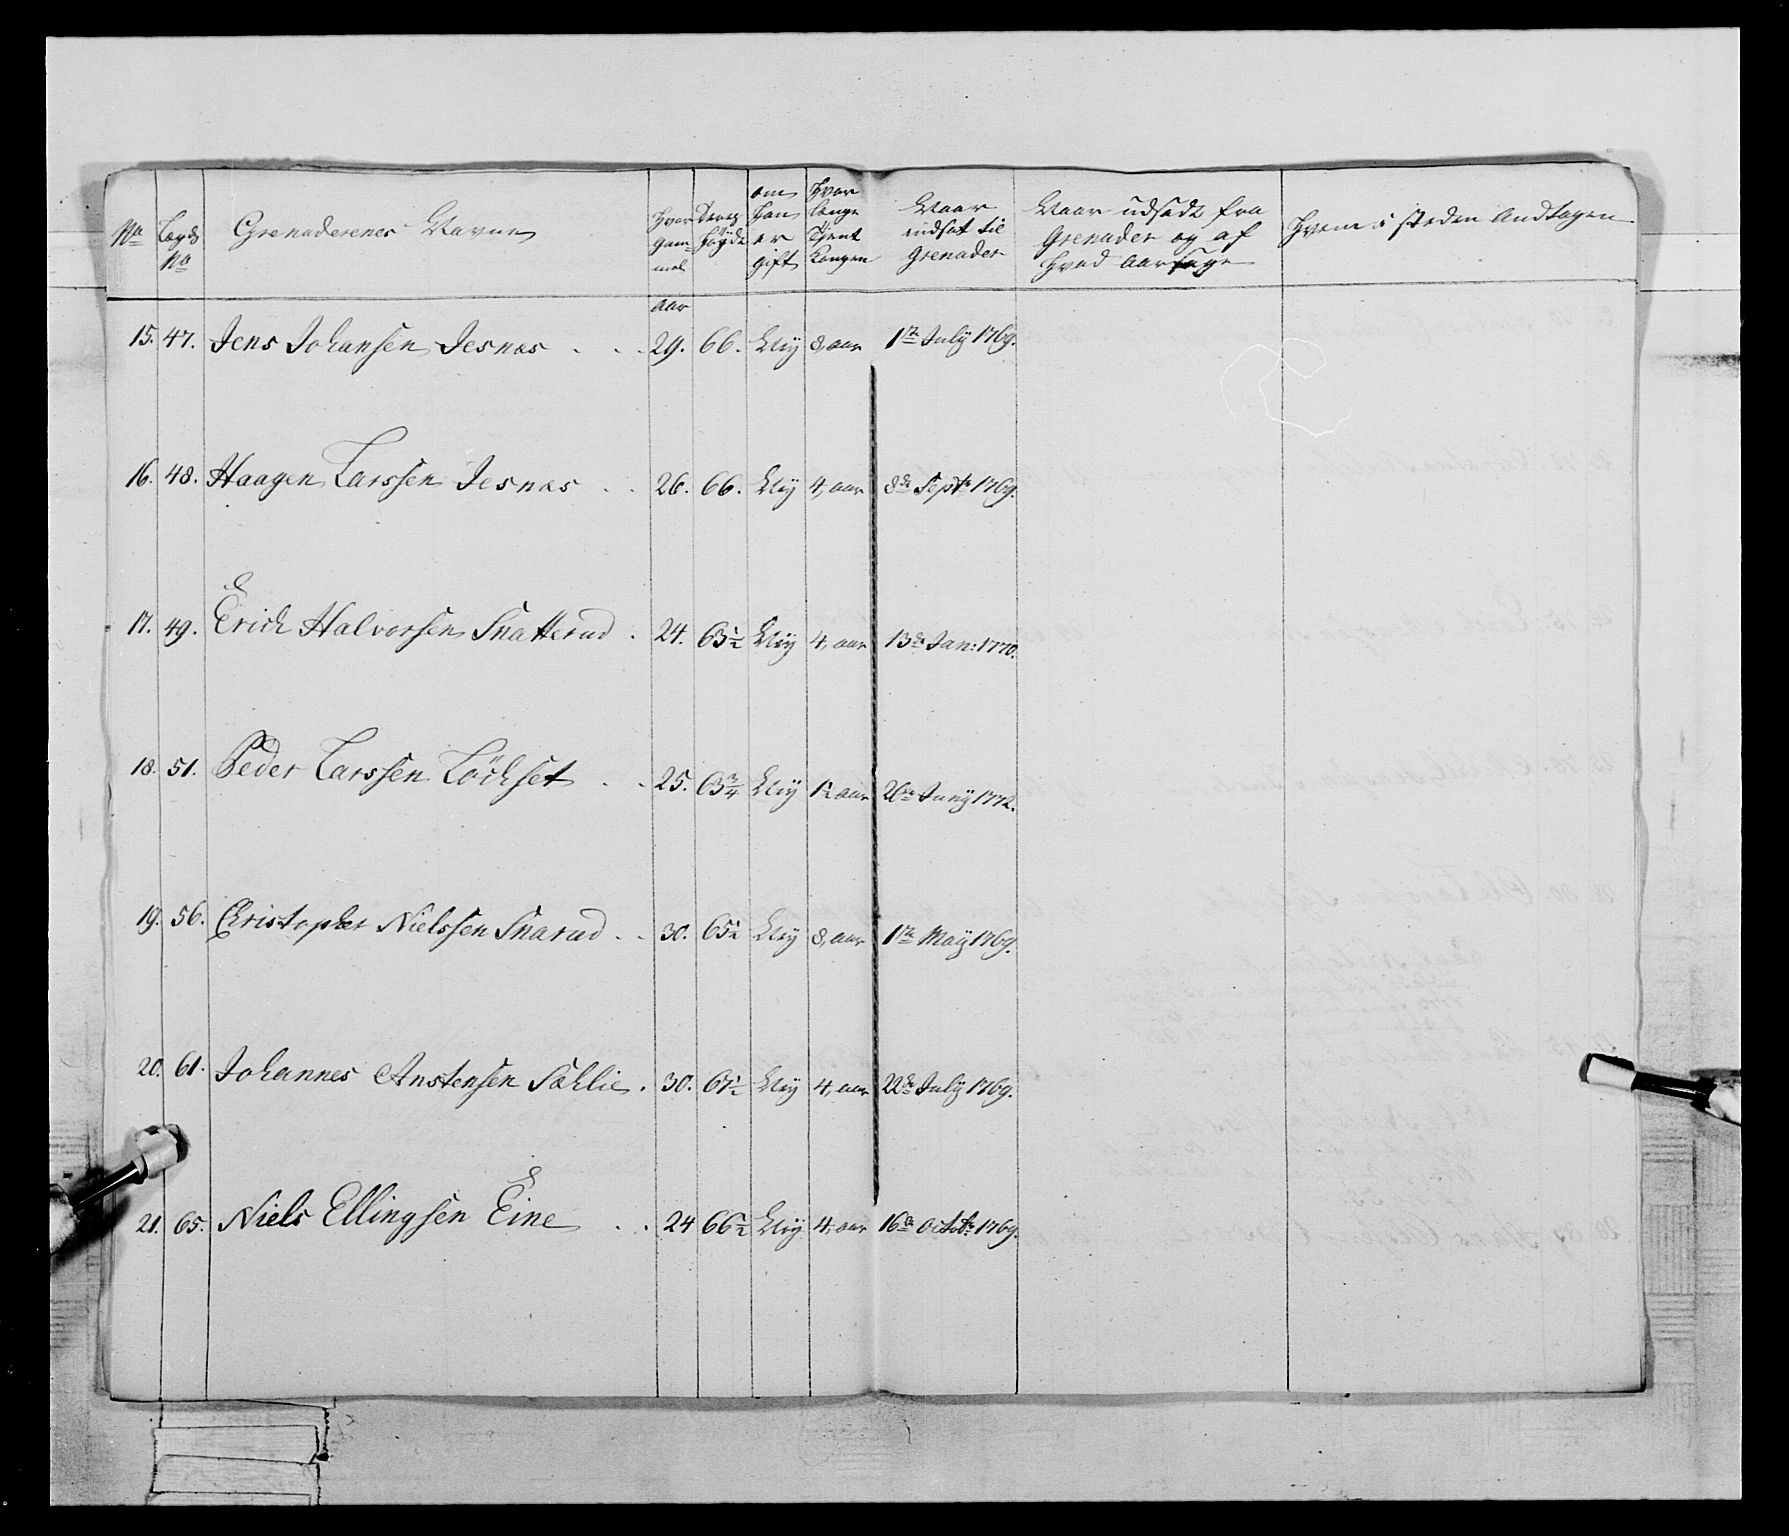 No Lægds No Grenaderenes Navne Hvor gam- mel Deres Høyde om han er gift Hvor længe Tjent Kongen Naar indsat til Grenader Naar udsadt fra Grenader og af hvad aarsage Hvem i steden Andtagen
aar
15. 47. Jens Johansen Jesnæs . . . 29. 66. Nej 8, aar 1te July 1769.
16. 48. Haagen Larssen Jesnæs . . 26. 66. Nej 4, aar 8de Septr 1769.
17. 49. Erich Halvorsen Snatterud . 24. 63½ Nej 4, aar 13de Jan: 1770.
18. 51. Peder Larssen Löchset . . 25. 63¾ Nej 1½ aar 26de Juny 1772.
19. 56. Christopher Nielssen Snarud . . 30. 65½ Nej 8, aar 1te May 1769.
20. 61. Johannes Anstensen Sæhlie . 30. 67½ Nej 4, aar 22de July 1769.
21. 65. Niels Ellingsen Eine . . 24 66½ Nej 4, aar 16de Octobr 1769.